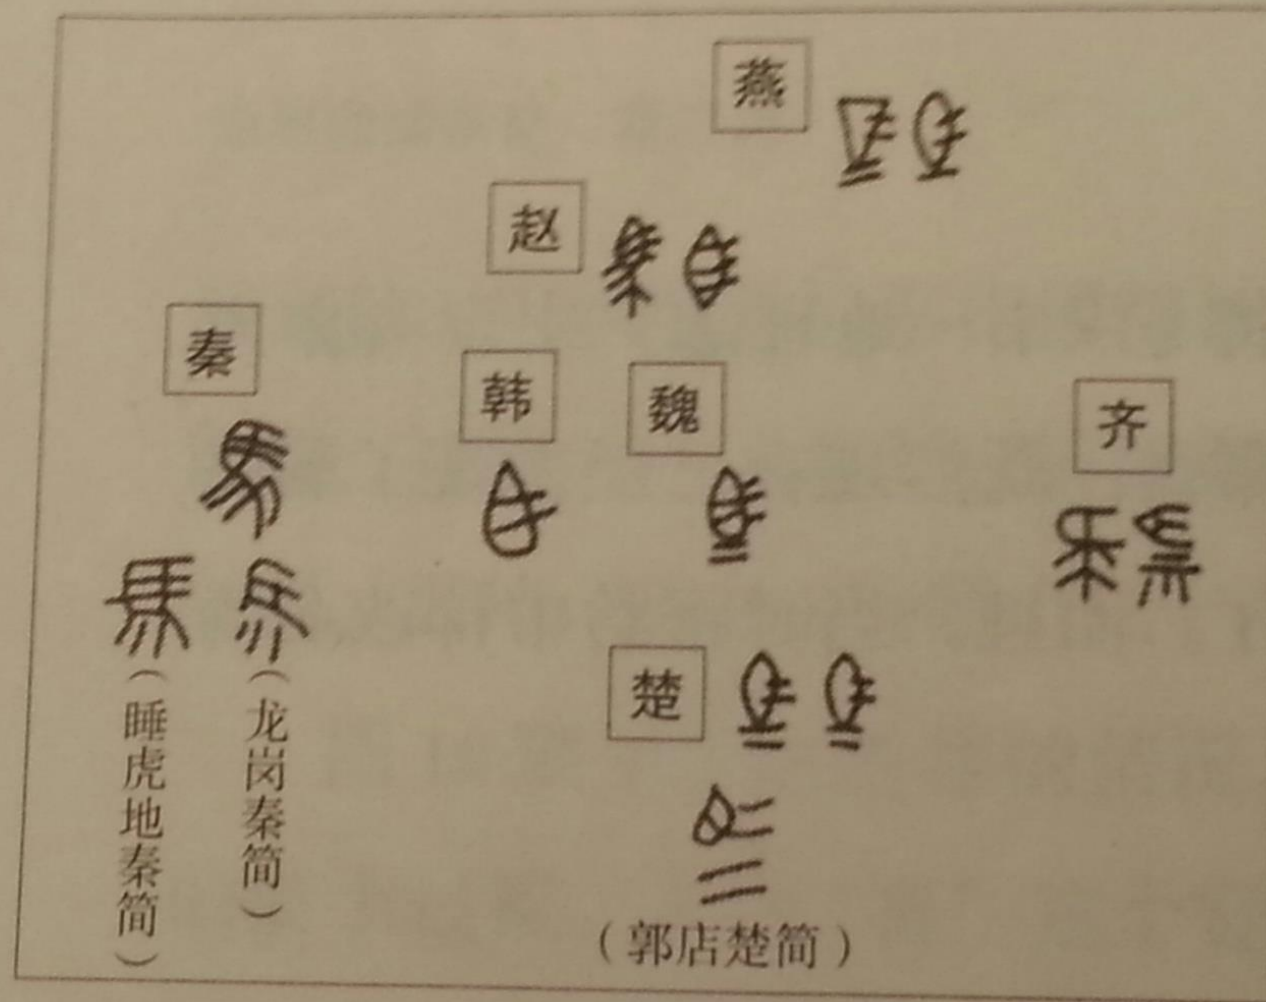 燕
赵
秦
韩
魏
齐
楚
（睡虎地秦简）
（龙岗秦简）
（郭店楚简）